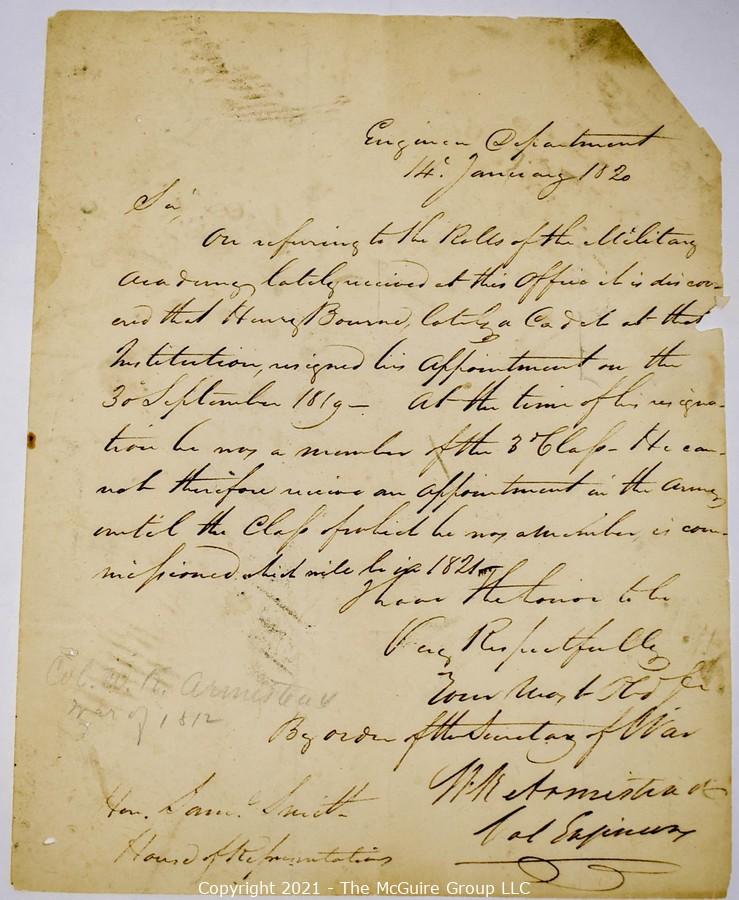 Engineer Department
14th January 1820
Sir,
On refering to the Rolls of the Military
Academy lately received at this Office it is discov-
ered that Henry Bourne, lately a Cadet at that
Institution, resigned his appointment on the
30 September 1819 - At the time of his resigna-
tion he was a member of the 3d Class - He can-
not therefore receive an appointment in the Army,
until the Class of which he was a member is com-
missioned which will be in 1821.
I have the honor to be
Very Respectfully
Your Most Obd Sr
By order of the Secretary of War
W. K. Armistead
Col Engineers
Col. W. K. Armistead
War of 1812
Hon. Saml. Smith
House of Representatives
Copyright 2021 - The McGuire Group LLC